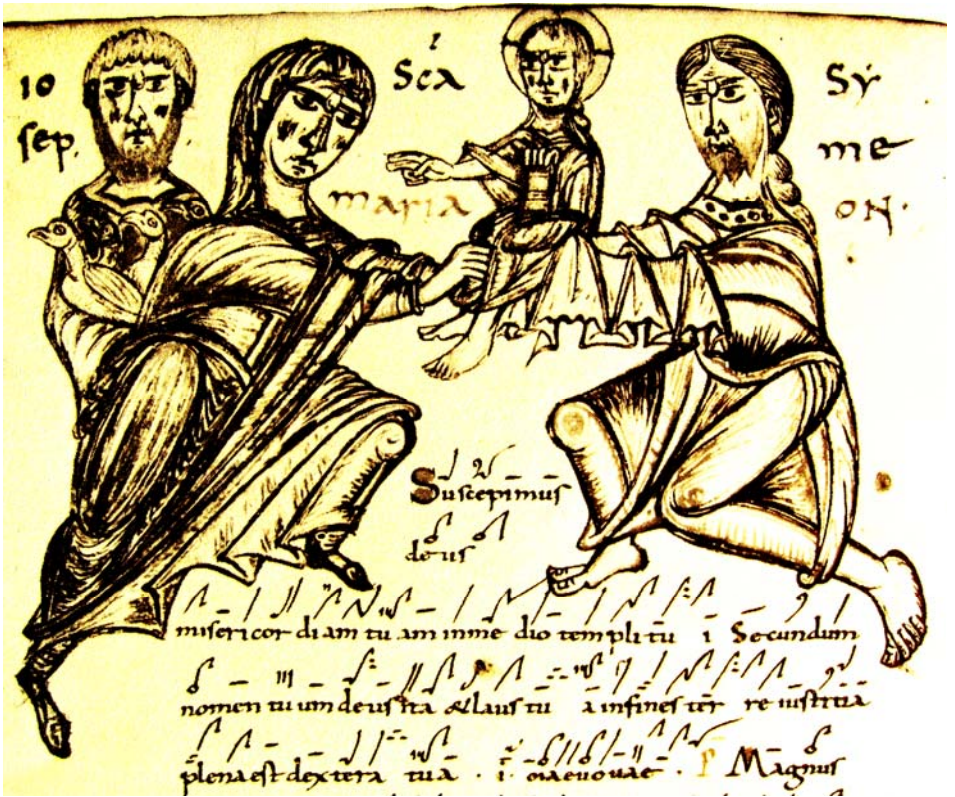 IO
sep.
Sca
maria
SY
me
ON.
Suscepimus
deus
misericordiam tuam inmedio templi tu i Secundum
nomen tuum deus ita & laus tua infines terre iustitia
plena est dextera tua . i. euouae . P Magnus